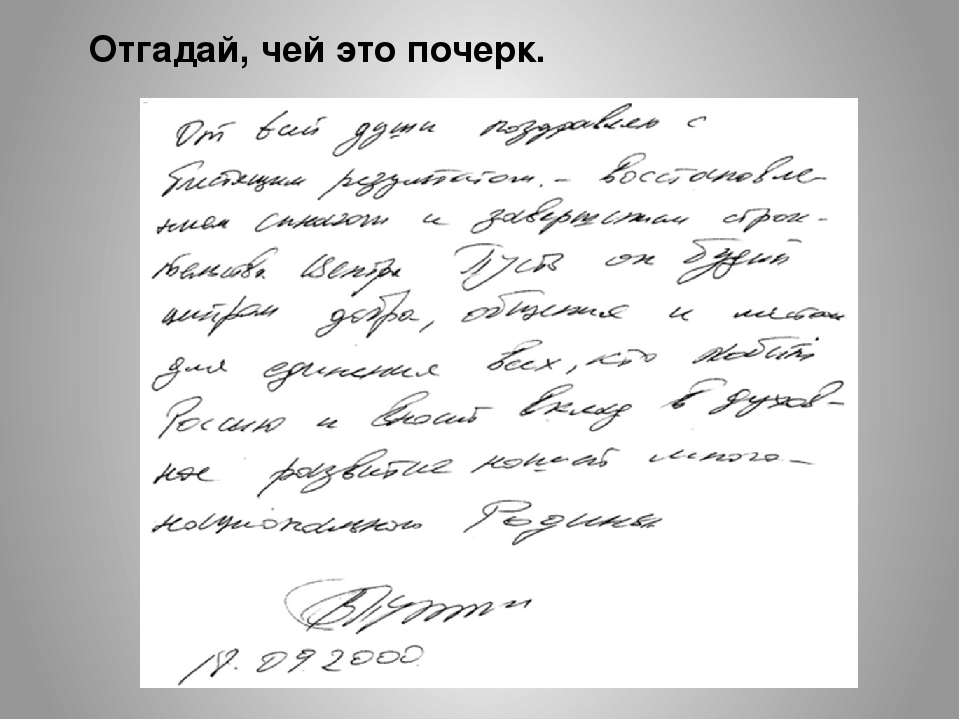 Отгадай, чей это почерк.
От всей души поздравляю с
блестящим результатом – восстановле-
нием синагоги и завершением строи-
тельства Центра Пусть он будет
центром добра, общения и местом
для единения всех, кто любит
Россию и вносит вклад в духов-
ное развитие нашей много-
национальной Родины
ВПутин
18.09.2000